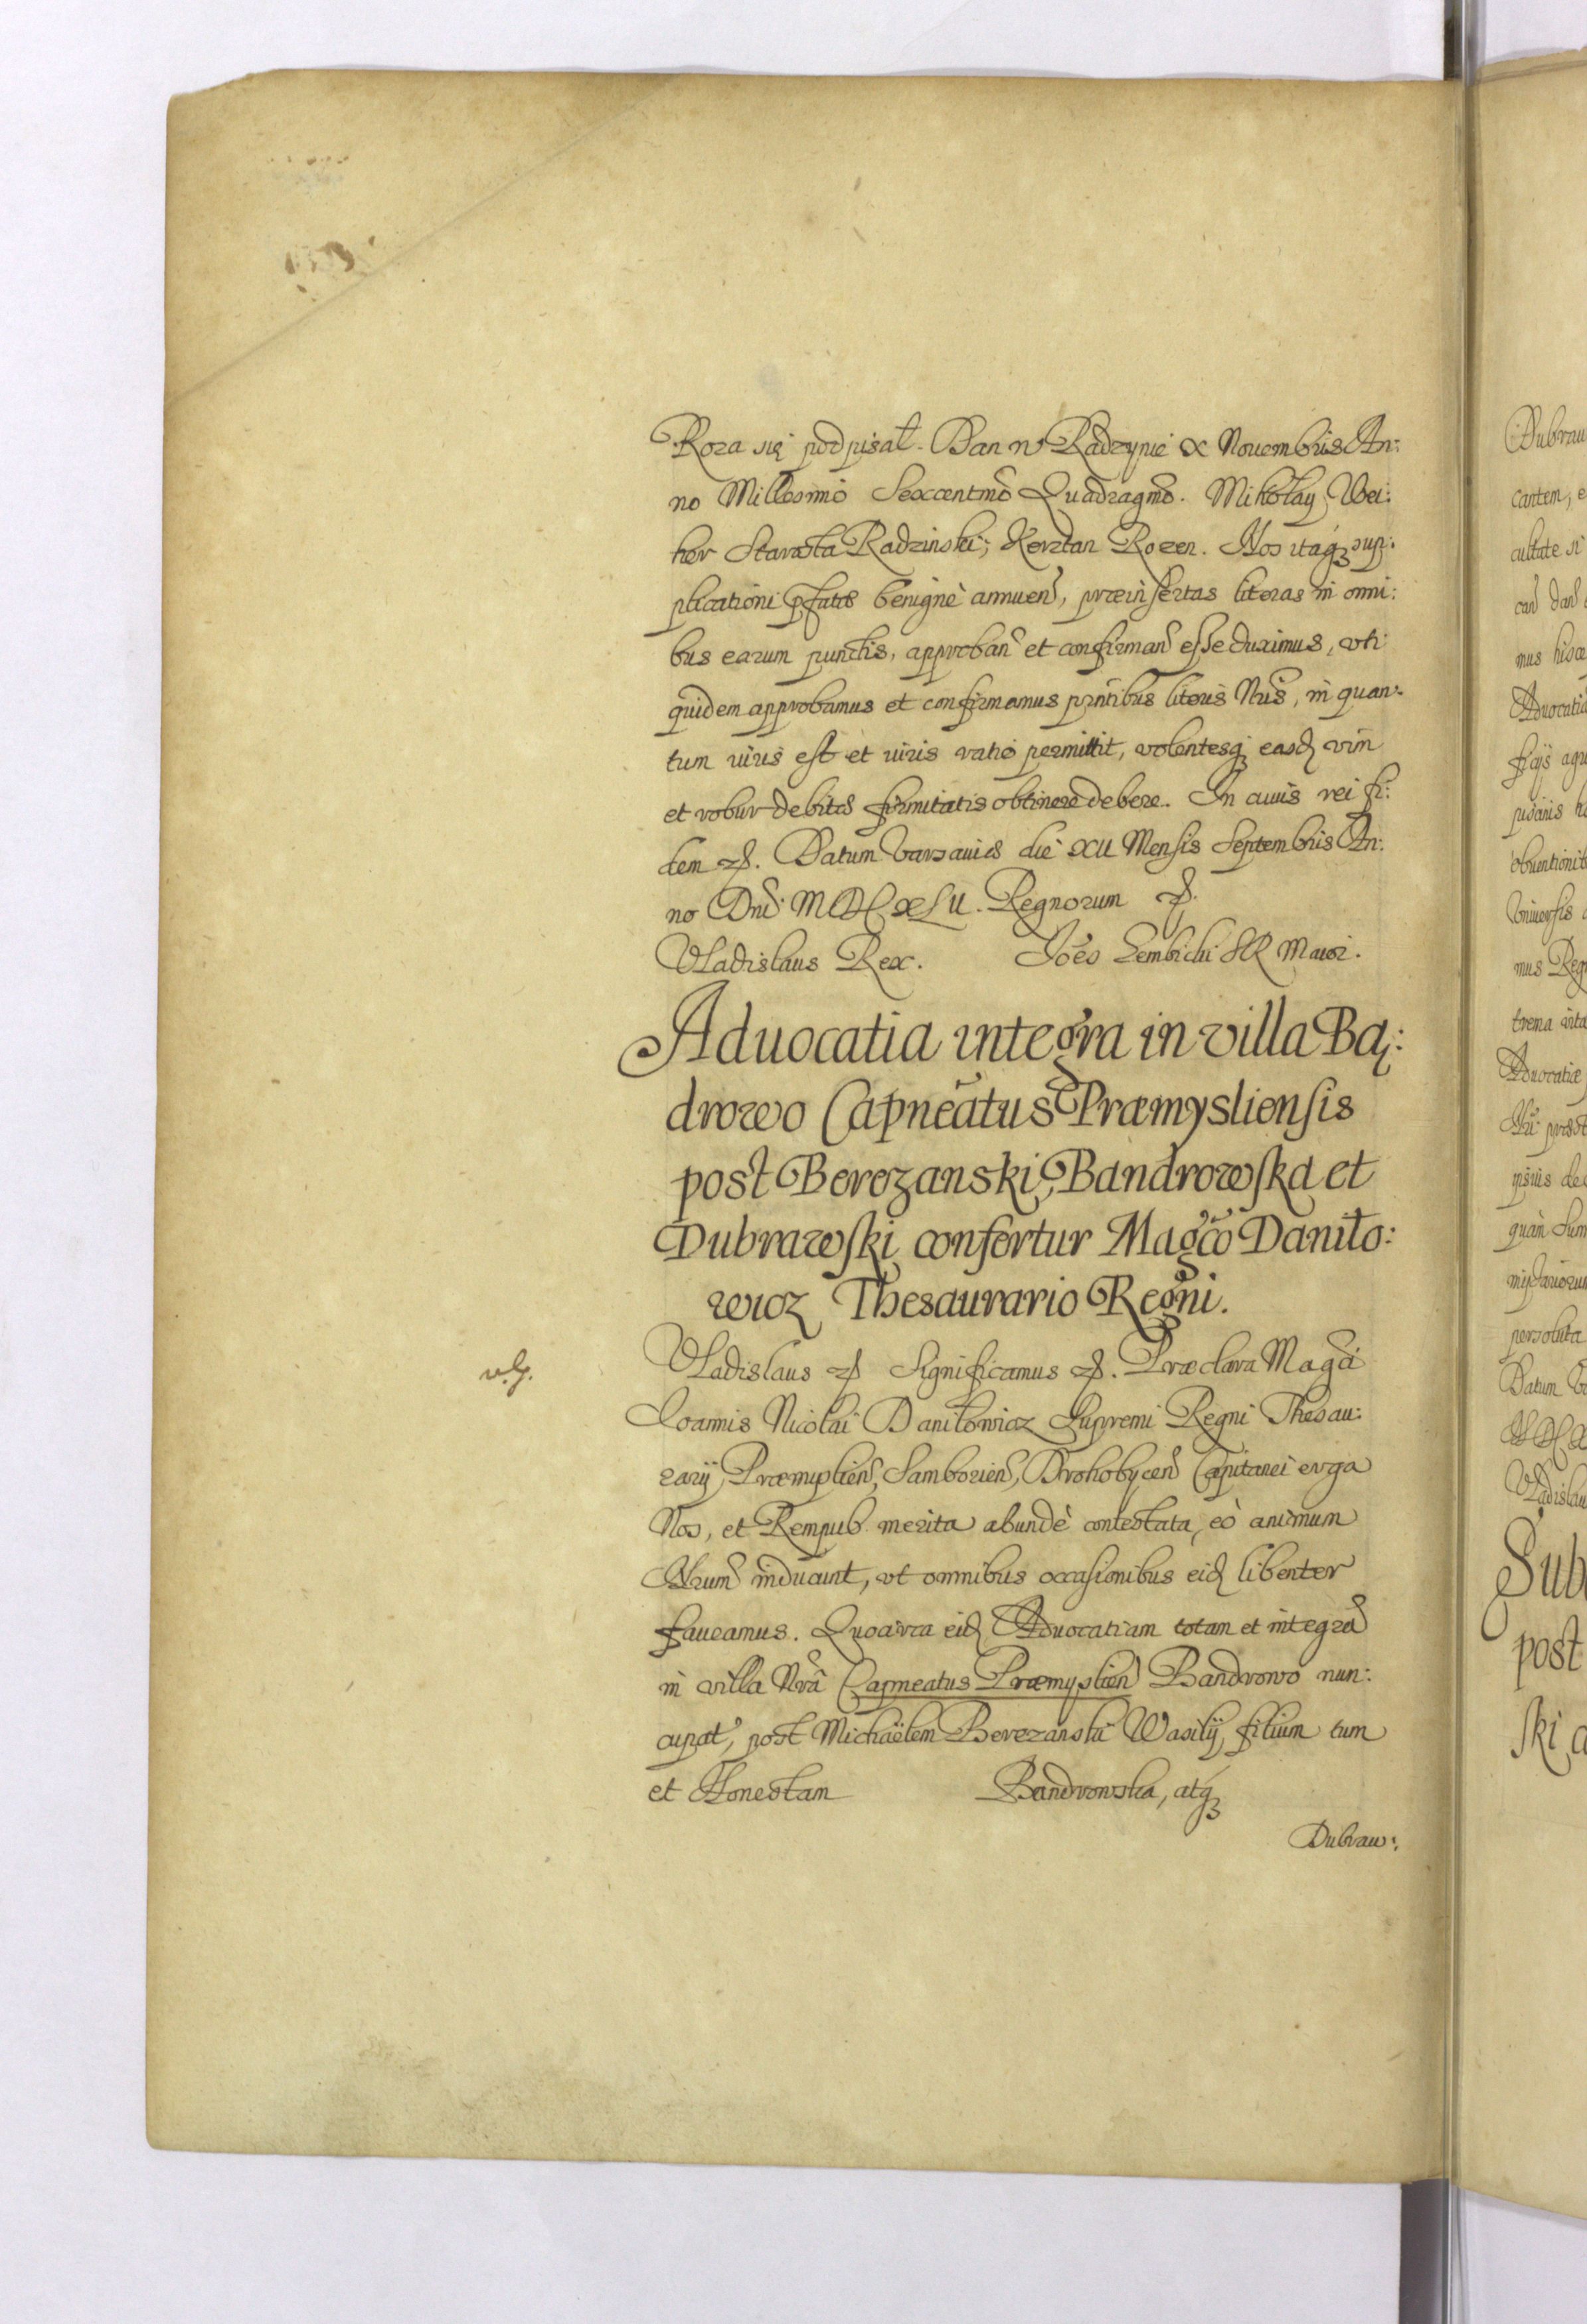 Roza się podpisał. Dan w Radzynie X Nouembris An:
no Millesimo Sexcentmo Quadragmo. Mikołay Wei:
her Starosta Radzinski; Kerztan Rozen. Nos itaq; sup:
plicationi pfatae benignè annuen, praeinsertas literas in omni:
bus earum punctis, approban et confirman esse duximus, vti
quidem approbamus et confirmamus pntibus literis Nris, in quan:
tum iuris est et iuris ratio permittit, volentesq; easd vim
et robur debitae firmitatis obtinere debere. In cuius rei fi:
dem &. Datum Varsauiae die XII Mensis Septembris An:
no Dni MDCXLII. Regnorum &.
Vladislaus Rex. Joes Lembicki SR Maior.
Aduocatia integra in villa Bą:
drowo Capneatus Præmysliensis
post Berezanski, Bandrowska et
Dubrawski confertur Magco Daniło:
wicz Thesaurario Regni.
Vladislaus & Significamus &. Præclara Magci
Joannis Nicolai Daniłowicz Supremi Regni Thesau:
rarij, Præmyslien, Samborien, Drohobycen Capitanei erga
Nos, et Rempub merita abundè contestata, eò animum
Nrum inducunt, vt omnibus occasionibus eid libenter
faueamus. Quocirca eid Aduocatiam totam et integra
in villa Nra Capneatus Præmyslien Bandrowo nun:
cupat, post Michaëlem Berezanski Wasilij filium tum
et Honestam Bandrowska, atq;
Dubraw:
Dubraw
cantem, e
cultate si
can dan
mus hisce
Aduocatia
persoluta
Datum V
Vladislau
Sub
post
ski, a